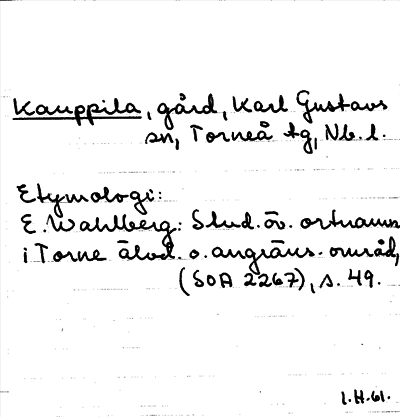 Kauppila, gård, Karl Gustavs
sn, Torneå tg, Nb. l.
Etymologi:
E. Wahlberg: Stud. öv. ortnamn
i Torne älvd. o. angräns. områd,
(SOA 2267), s. 49.
I.H.61.